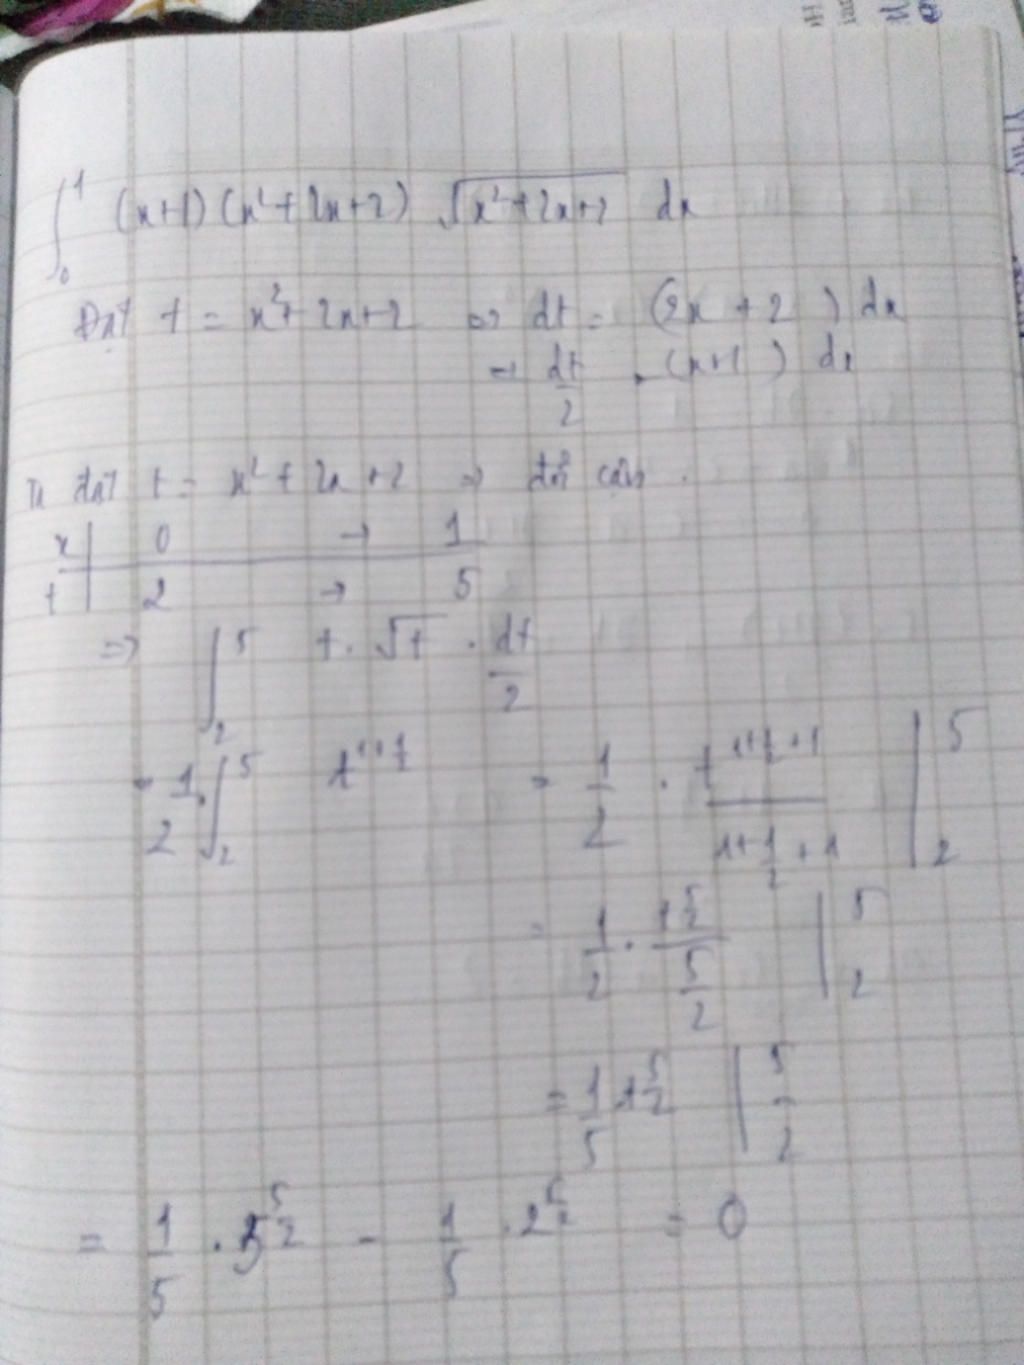 ∫₀¹ (x+1)(x²+2x+2) √(x²+2x+2) dx
Đặt t = x²+2x+2 ⇒ dt = (2x + 2) dx
⇒ dt/2 = (x+1) dx
Từ đặt t = x² + 2x + 2 ⇒ đổi cận.
x | 0 → 1
t | 2 → 5
⇒ ∫₂⁵ t . √t . dt/2
= 1/2 . ∫₂⁵ t^(1+1/2) = 1/2 . t^(1+1/2+1) / (1+1/2+1) |₂⁵
= 1/2 . t^(5/2) / (5/2) |₂⁵
= 1/5 t^(5/2) |₂⁵
= 1/5 . 5^(5/2) - 1/5 . 2^(5/2) = 0